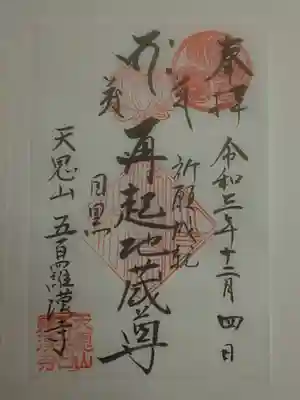 奉拝
令和三年十二月四日
祈願成就
再起地蔵尊
目黒
天恩山 五百羅漢寺
天恩山